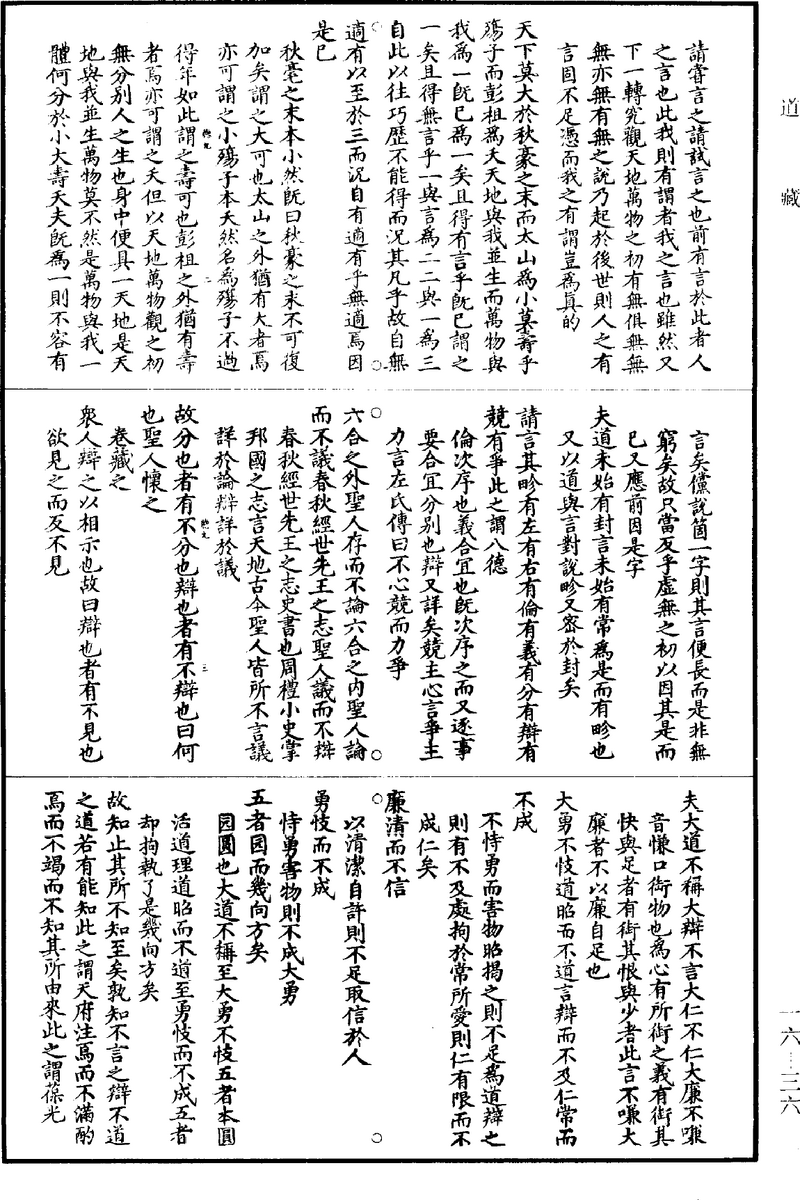 道藏
請嘗言之請試言之也前有言於此者人
之言也此我則有謂者我之言也雖然又
下一轉究觀天地萬物之初有無俱無無
無亦無有無之說乃起於後世則人之有
言固不足憑而我之有謂豈爲真的
天下莫大於秋豪之末而太山爲小莫壽乎
殤子而彭祖爲夭天地與我並生而萬物與
我爲一旣已爲一矣且得有言乎旣已謂之
一矣且得無言乎一與言爲二二與一爲三
自此以往巧歷不能得而況其凡乎故自無
適有以至於三而況自有適有乎無適焉因
是已
秋毫之末本小然旣曰秋豪之末不可復
加矣謂之大可也太山之外猶有大者焉
亦可謂之小殤子本夭然名爲殤子不過
得年如此謂之壽可也彭祖之外猶有壽
者焉亦可謂之夭但以天地萬物觀之初
無分別人之生也身中便具一天地是天
地與我並生萬物莫不然是萬物與我一
體何分於小大壽夭夫旣爲一則不容有
言矣儻說箇一字則其言便長而是非無
窮矣故只當反乎虛無之初以因其是而
已又應前因是字
夫道未始有封言未始有常爲是而有畛也
又以道與言對說畛又密於封矣
請言其畛有左有右有倫有義有分有辯有
競有爭此之謂八德
倫次序也義合宜也旣次序之而又逐事
要合宜分別也辯又詳矣競主心言爭主
力言左氏傳曰不心競而力爭
六合之外聖人存而不論六合之內聖人論
而不議春秋經世先王之志聖人議而不辯
春秋經世先王之志史書也周禮小史掌
邦國之志言天地古今聖人皆所不言議
詳於論辯詳於議
故分也者有不分也辯也者有不辯也曰何
也聖人懷之
卷藏之
衆人辯之以相示也故曰辯也者有不見也
欲見之而反不見
夫大道不稱大辯不言大仁不仁大廉不嗛
音慊口銜物也爲心有所銜之義有銜其
快與足者有銜其恨與少者此言不嗛大
廉者不以廉自足也
大勇不忮道昭而不道言辯而不及仁常而
不成
不恃勇而害物昭揭之則不足爲道辯之
則有不及處拘於常所愛則仁有限而不
成仁矣
廉清而不信
以清潔自許則不足取信於人
勇忮而不成
恃勇害物則不成大勇
五者园而幾向方矣
园圓也大道不稱至大勇不忮五者本圓
活道理道昭而不道至勇忮而不成五者
却拘執了是幾向方矣
故知止其所不知至矣孰知不言之辯不道
之道若有能知此之謂天府注焉而不滿酌
焉而不竭而不知其所由來此之謂葆光
一六—三六